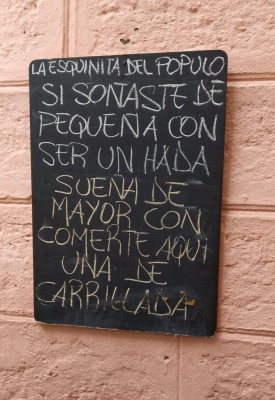 LA ESQUINITA DEL POPULO
SI SOÑASTE DE
PEQUEÑA CON
SER UN HADA
SUEÑA DE
MAYOR CON
COMERTE AQUI
UNA DE
CARRILLADA